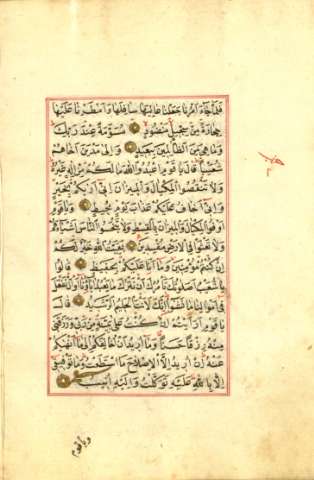 فَلَمَّا جَاءَ اَمْرُنَا جَعَلْنَا عَالِيَهَا سَافِلَهَا وَاَمْطَرْنَا عَلَيْهَا
حِجَارَةً مِنْ سِجِّيلٍ مَنْضُودٍ مُسَوَّمَةً عِنْدَ رَبِّكَ
وَمَا هِيَ مِنَ الظَّالِمِينَ بِبَعِيدٍ وَاِلٰى مَدْيَنَ اَخَاهُمْ
شُعَيْبًا قَالَ يَا قَوْمِ اعْبُدُوا اللّٰهَ مَا لَكُمْ مِنْ اِلٰهٍ غَيْرُهُ
وَلَا تَنْقُصُوا الْمِكْيَالَ وَالْمِيزَانَ اِنِّي اَرٰيكُمْ بِخَيْرٍ
وَاِنِّي اَخَافُ عَلَيْكُمْ عَذَابَ يَوْمٍ مُحِيطٍ وَيَا قَوْمِ
اَوْفُوا الْمِكْيَالَ وَالْمِيزَانَ بِالْقِسْطِ وَلَا تَبْخَسُوا النَّاسَ اَشْيَاءَهُمْ
وَلَا تَعْثَوْا فِي الْاَرْضِ مُفْسِدِينَ بَقِيَّتُ اللّٰهِ خَيْرٌ لَكُمْ
اِنْ كُنْتُمْ مُؤْمِنِينَ وَمَا اَنَا عَلَيْكُمْ بِحَفِيظٍ قَالُوا
يَا شُعَيْبُ اَصَلٰوتُكَ تَأْمُرُكَ اَنْ نَتْرُكَ مَا يَعْبُدُ اٰبَاؤُنَا اَوْ اَنْ نَفْعَلَ
فِي اَمْوَالِنَا مَا نَشٰؤُا اِنَّكَ لَاَنْتَ الْحَلِيمُ الرَّشِيدُ قَالَ
يَا قَوْمِ اَرَاَيْتُمْ اِنْ كُنْتُ عَلٰى بَيِّنَةٍ مِنْ رَبِّي وَرَزَقَنِي
مِنْهُ رِزْقًا حَسَنًا وَمَا اُرِيدُ اَنْ اُخَالِفَكُمْ اِلٰى مَا اَنْهٰيكُمْ
عَنْهُ اِنْ اُرِيدُ اِلَّا الْاِصْلَاحَ مَا اسْتَطَعْتُ وَمَا تَوْفِيقِي
اِلَّا بِاللّٰهِ عَلَيْهِ تَوَكَّلْتُ وَاِلَيْهِ اُنِيبُ
ويا قوم